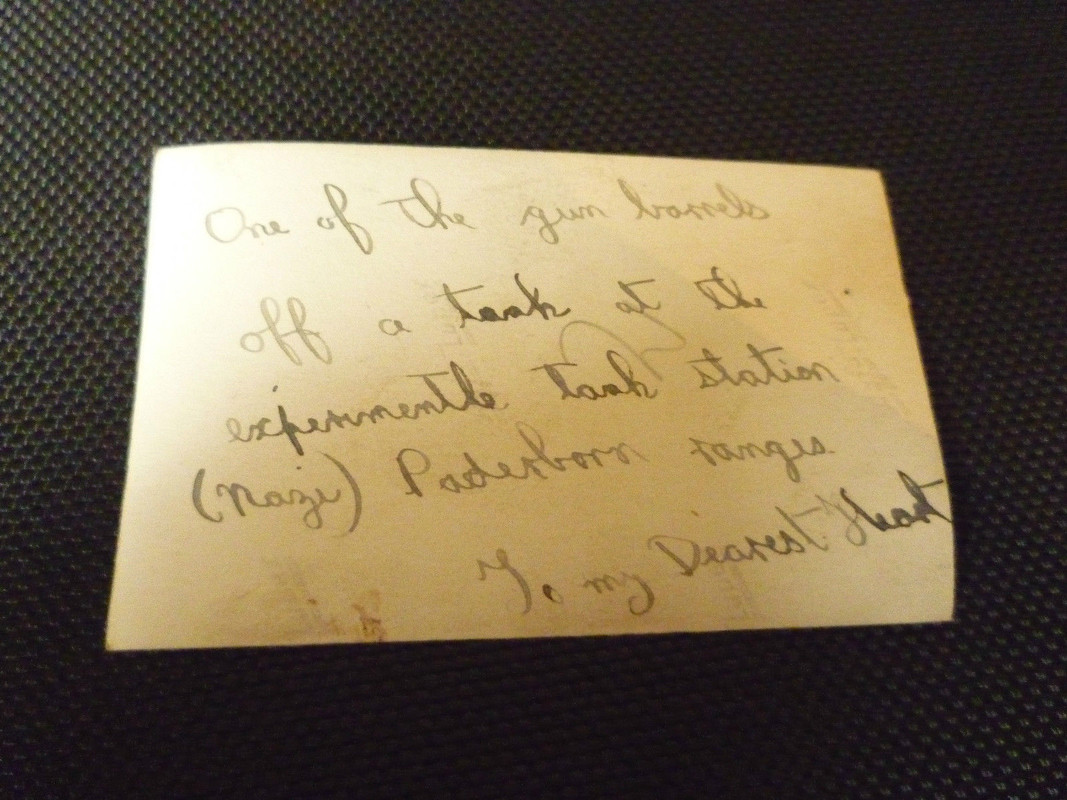 One of the gun barrels
off a tank at the
experimentle tank station
(Nazi) Paderborn ranges
To my Dearest Heart